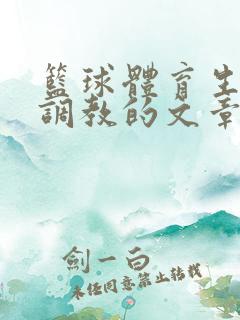 籃球體育生
調教的文章
劍一白
未任同意禁止转载